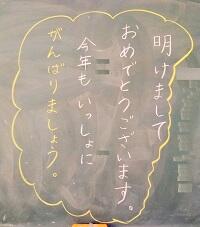 明けまして
おめでとうございます。
今年もいっしょに
がんばりましょう。